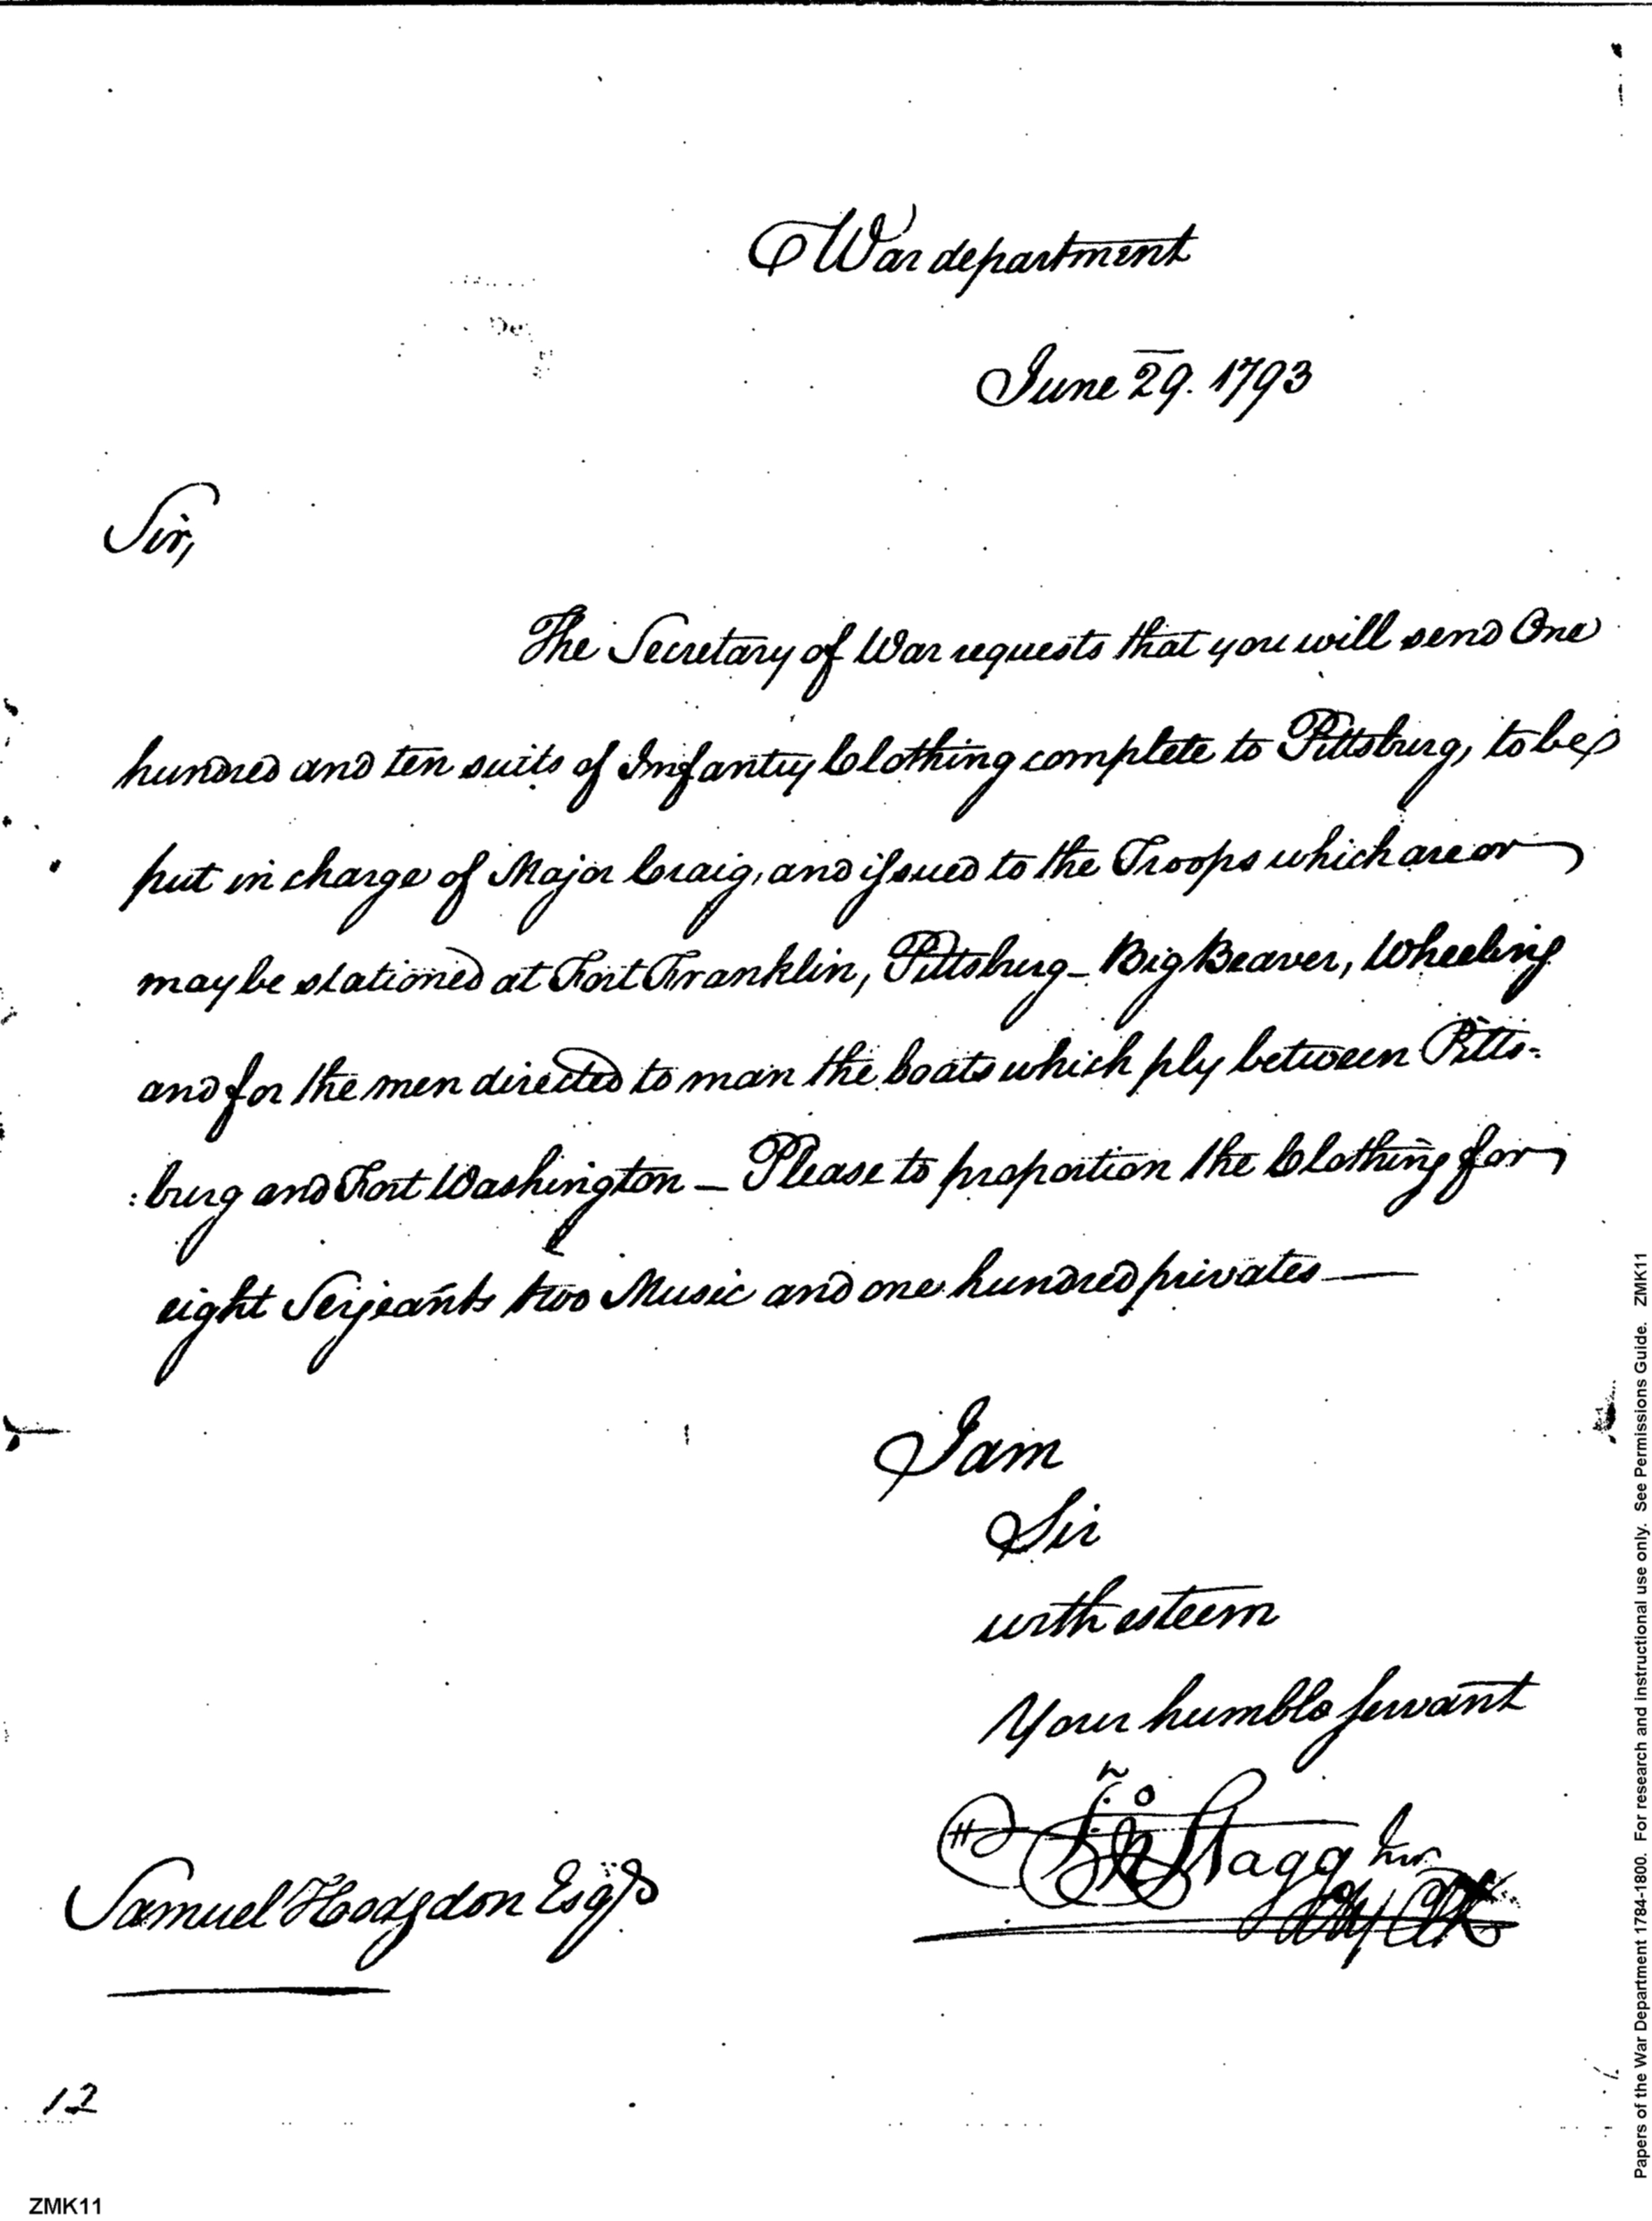 War department
June 29. 1793
Sir,
The Secretary of War requests that you will send One
hundred and ten suits of Infantry Clothing complete to Pittsburg, to be
put in charge of Major Craig, and issued to the Troops which are or
may be stationed at Fort Franklin, Pittsburg_ Big Beaver, Wheeling
and for the men directed to man the boats which ply between Pitts-
:burg and Fort Washington _ Please to proportion the Clothing for
eight Serjeants two Music and one hundred privates —
I am
Sir
with esteem
Your humble servant
Jno Stagg Junr
Samuel Hodgdon Esqr
12
ZMK11
Papers of the War Department 1784-1800. For research and instructional use only. See Permissions Guide. ZMK11